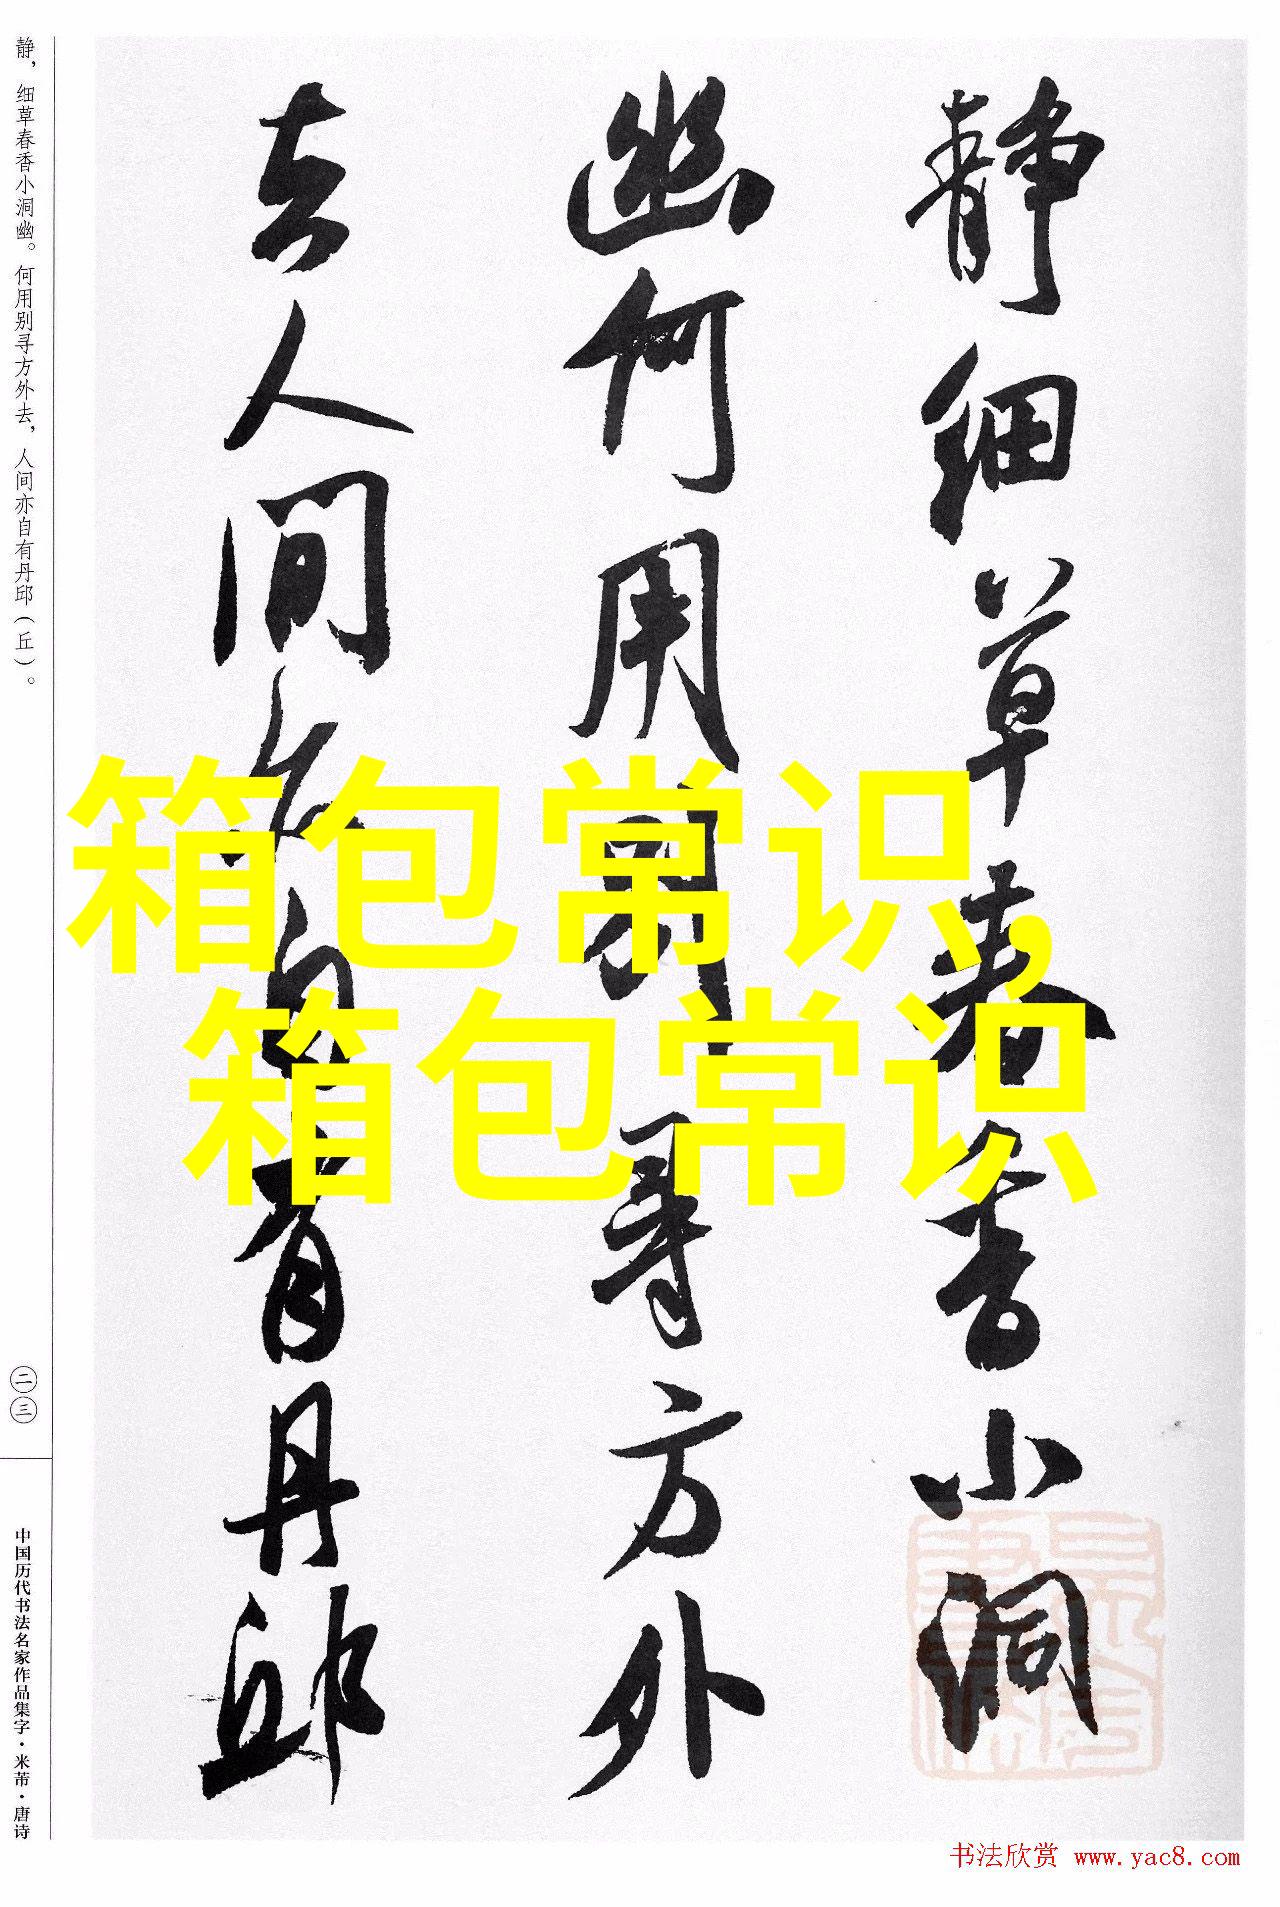 静细草春香小洞
幽何用别寻方外
去人间亦自有丹邱
箱包常识,
箱包常识
静，细草春香小洞幽。何用别寻方外去，人间亦自有丹邱（丘）。
二三
中国历代书法名家作品集字·米芾·唐诗
书法欣赏 www.yac8.com